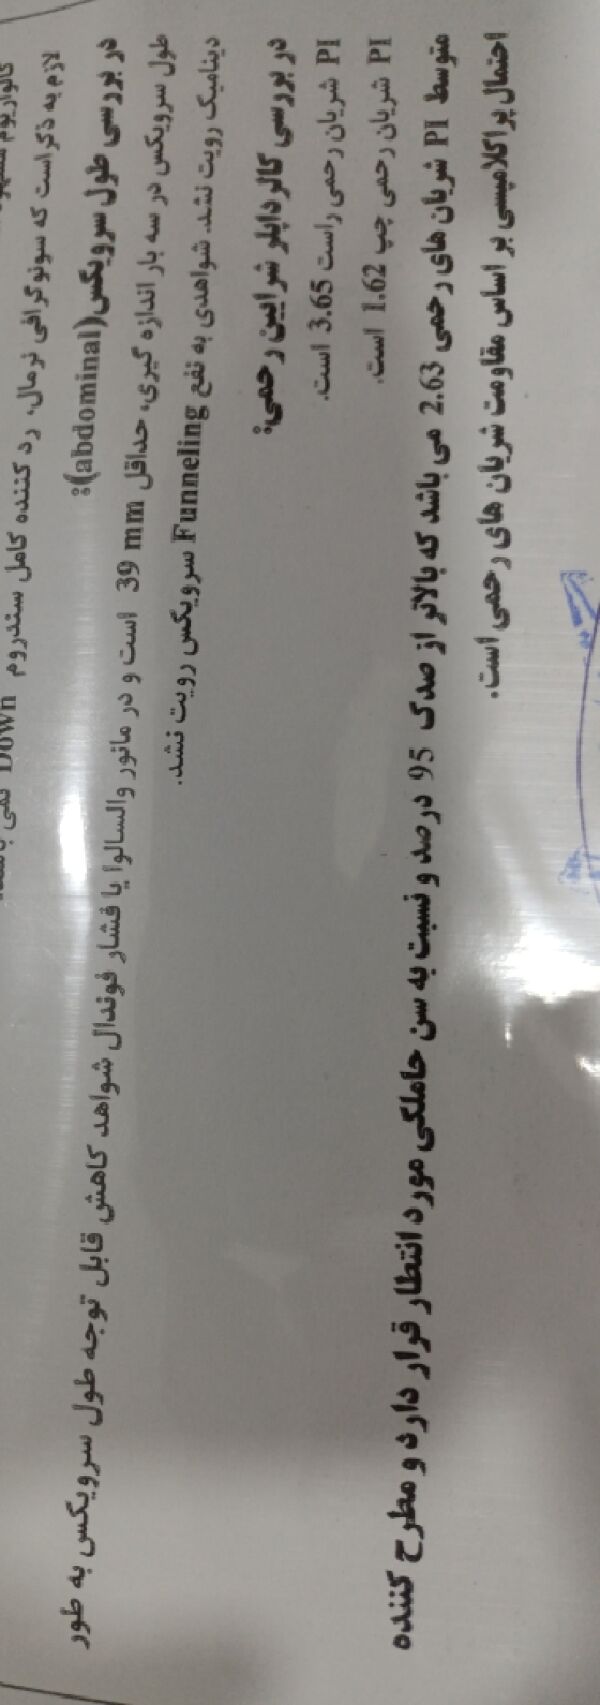 لازم به ذکر است که سونوگرافی نرمال، رد کننده کامل سندروم Down نمی
در بررسی طول سرویکس(abdominal):
طول سرویکس در سه بار اندازه گیری، حداقل 39 mm است و در مانور والسالوا یا فشار فوندال شواهد کاهش قابل توجه طول سرویکس به طور
دینامیک رویت نشد. شواهدی به نفع Funneling سرویکس رویت نشد.
در بررسی کالر داپلر شرایین رحمی:
PI شریان رحمی راست 3.65 است.
PI شریان رحمی چپ 1.62 است.
متوسط PI شریان های رحمی 2.63 می باشد که بالاتر از صدک 95 درصد و نسبت به سن حاملگی مورد انتظار قرار دارد و مطرح کننده
احتمال پراکلامپسی بر اساس مقاومت شریان های رحمی است.